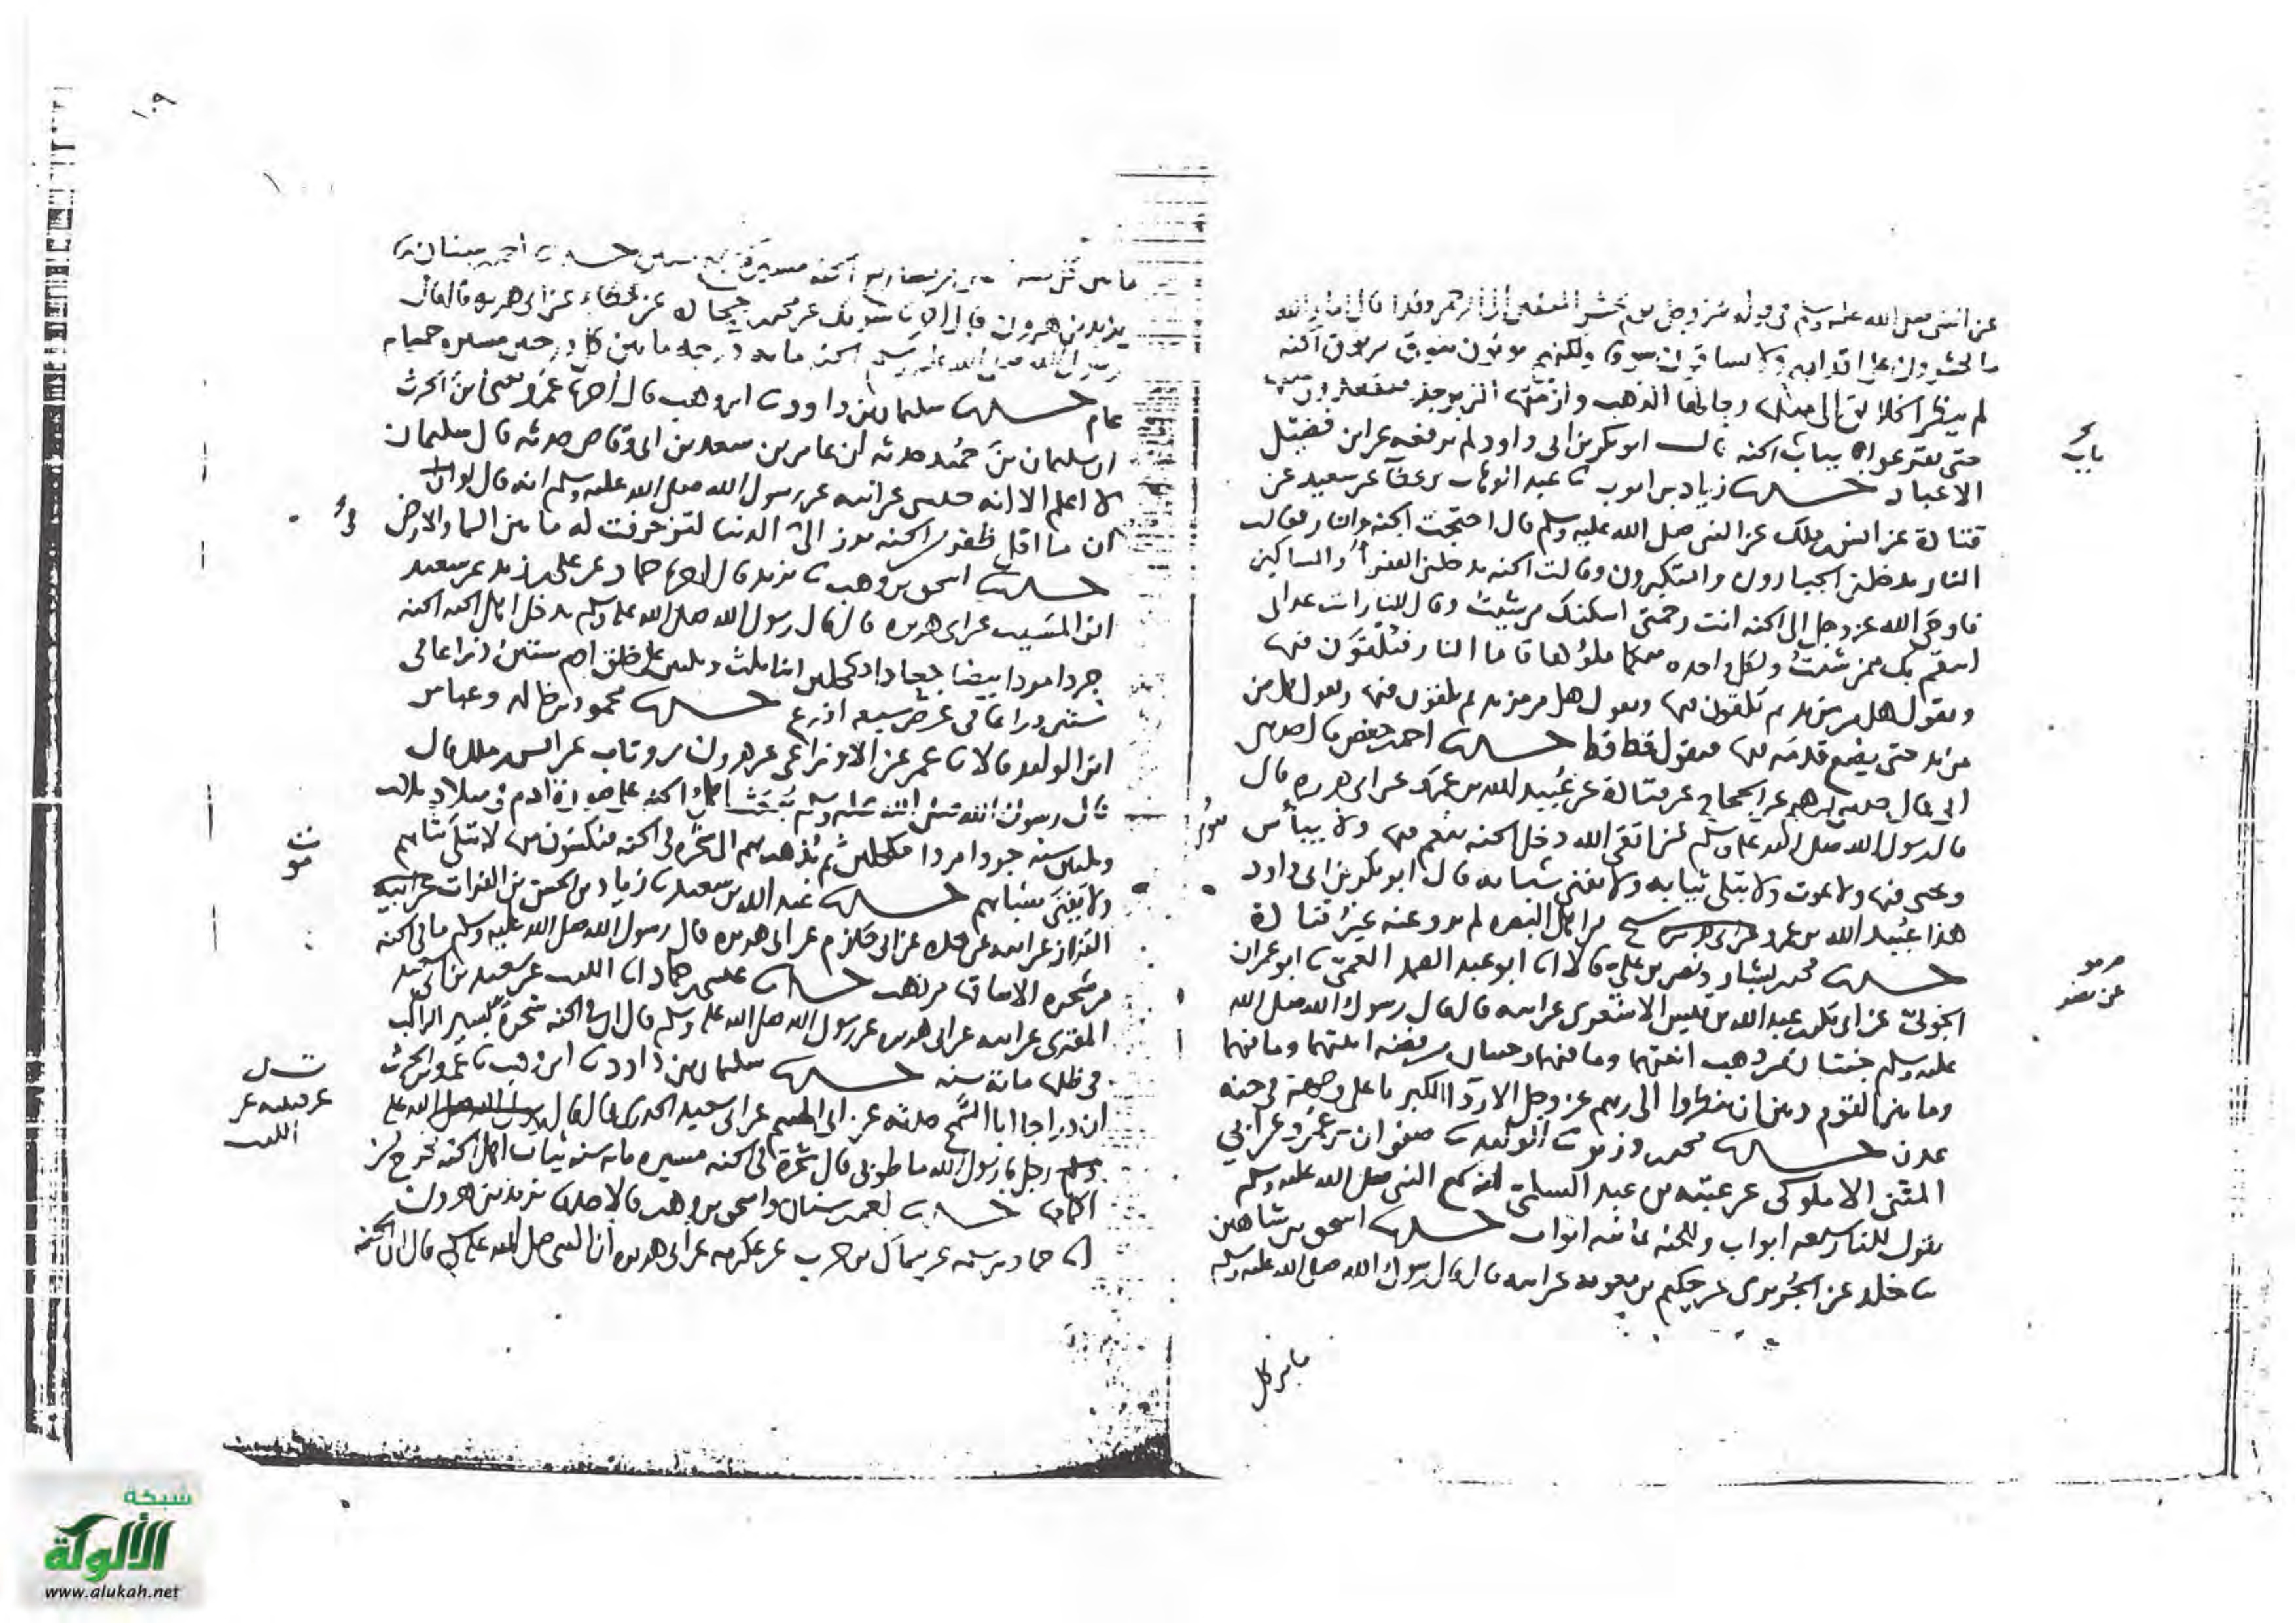 عن النبي صلى الله عليه وسلم في قوله عز وجل يوم نحشر المتقين إلى الرحمن وفدا قال اما والله
ما يحشرون على اقدامهم ولا يساقون سوقا ولكنهم يوتون بنوق من نوق الجنة
لم ينظر الخلائق الى مثلها رحالها الذهب وازمتها الزبرجد فيقعدون عليها
حتى يقرعوا باب الجنة قال ابو بكر بن ابي داود لم يرفعه عن ابن فضيل
الا عباد حدثنا زياد بن ايوب ثنا عبد الوهاب بن عطا عن سعيد عن
قتادة عن انس بن ملك عن النبي صلى الله عليه وسلم قال احتجت الجنة والنار فقالت
النار يدخلني الجبارون والمتكبرون وقالت الجنة يدخلني الفقرا والمساكين
فاوحى الله عز وجل الى الجنة انت رحمتي اسكنك من شئت وقال للنار انت عذابي
انتقم بك ممن شئت ولكل واحدة منكما ملؤها فاما النار فيلقون فيها
وتقول هل من مزيد ثم يلقون فيها وتقول هل من مزيد ثم يلقون فيها وتقول هل من
مزيد حتى يضع قدمه فيها فتقول قط قط حدثنا احمد بن حفص قال حدثني
ابي قال حدثني ابرهيم عن الحجاج عن قتادة عن عبيد الله بن عمرو عن ابي هريرة قال
قال رسول الله صلى الله عليه وسلم من اتقى الله دخل الجنة ينعم فيها ولا يبأس
ويحيى فيها ولا يموت ولا تبلى ثيابه ولا يفنى شبابه قال ابو بكر بن ابي داود
هذا عبيد الله بن عمرو من اهل البصرة لم يرو عنه غير قتادة
حدثنا محمد بن بشار ونصر بن علي قالا ثنا ابو عبد الصمد العمي ثنا ابو عمران
الجوني عن ابي بكر بن عبد الله بن قيس الاشعري عن ابيه قال قال رسول الله صلى الله
عليه وسلم جنتان من ذهب انيتهما وما فيهما وجنتان من فضة انيتهما وما فيهما
وما بين القوم وبين ان ينظروا الى ربهم عز وجل الا ردا الكبريا على وجهه في جنة
عدن حدثنا محمد بن وزير ثنا الوليد ثنا صفوان بن عمرو عن ابي
المثنى الاملوكي عن عتبة بن عبد السلمي انه سمع النبي صلى الله عليه وسلم
يقول للنار سبعة ابواب وللجنة ثمانية ابواب حدثنا اسحق بن شاهين
ثنا خلد عن الجريري عن حكيم بن معوية عن ابيه قال قال رسول الله صلى الله عليه وسلم
ما بين كل
١٠٩
ما بين كل مصراعين من مصاريع الجنة مسيرة سبع سنين حدثنا احمد بن سنان ثنا
يزيد بن هرون قال انا شريك عن محمد بن جحادة عن عطاء عن ابي هريرة قال قال
رسول الله صلى الله عليه وسلم الجنة ماية درجة ما بين كل درجتين مسيرة خمسماية
عام حدثنا سليمن بن داود ثنا ابن وهب قال اخبرنا عمرو يعني ابن الحرث
ان سليمان بن حميد حدثه ان عامر بن سعد بن ابي وقاص حدثه قال سليمان
لا اعلم الا انه حدثني عن ابيه عن رسول الله صلى الله عليه وسلم انه قال لو ان
ان ما اقل ظفر من الجنة برز الى الدنيا لتزخرفت له ما بين السما والارض
حدثنا اسحق بن وهب ثنا يزيد قال اخبرنا حماد عن علي بن زيد عن سعيد
ابن المسيب عن ابي هريرة قال قال رسول الله صلى الله عليه وسلم يدخل اهل الجنة الجنة
جردا مردا بيضا جعادا مكحلين ابنا ثلث وثلثين على خلق ادم ستين ذراعا في
ستين ذراعا في عرض سبعة اذرع حدثنا محمود بن خالد وعباس
ابن الوليد قالا ثنا عمر عن الاوزاعي عن هرون بن رئاب عن انس بن ملك قال
قال رسول الله صلى الله عليه وسلم يبعث اهل الجنة على صورة ادم في ميلاد ثلث
وثلثين سنة جردا مردا مكحلين ثم يذهب بهم الى شجرة في الجنة فيكسون منها لا تبلى ثيابهم
ولا يفنى شبابهم حدثنا عبد الله بن سعيد ثنا زياد بن الحسن بن الفرات
القزاز عن ابيه عن جده عن ابي حازم عن ابي هريرة قال رسول الله صلى الله عليه وسلم ما في الجنة
من شجرة الا ساقها من ذهب حدثنا عيسى بن حماد انا الليث عن سعيد بن ابي سعيد
المقبري عن ابيه عن ابي هريرة عن رسول الله صلى الله عليه وسلم قال ان في الجنة شجرة يسير الراكب
في ظلها مائة سنة حدثنا سليمان بن داود ثنا ابن وهب ثنا عمرو بن الحرث
ان دراجا ابا السمح حدثه عن ابي الهيثم عن ابي سعيد الخدري قال قال
رجل يا رسول الله ما طوبى قال شجرة في الجنة مسيرة ماية سنة ثياب اهل الجنة تخرج من
اكمامها حدثنا احمد بن سنان واسحق بن وهب قالا حدثنا يزيد بن هرون
انا حماد بن سلمة عن سماك بن حرب عن عكرمة عن ابي هريرة ان النبي صلى الله عليه وسلم قال ان الجنة
شبكة
الألوكة
www.alukah.net